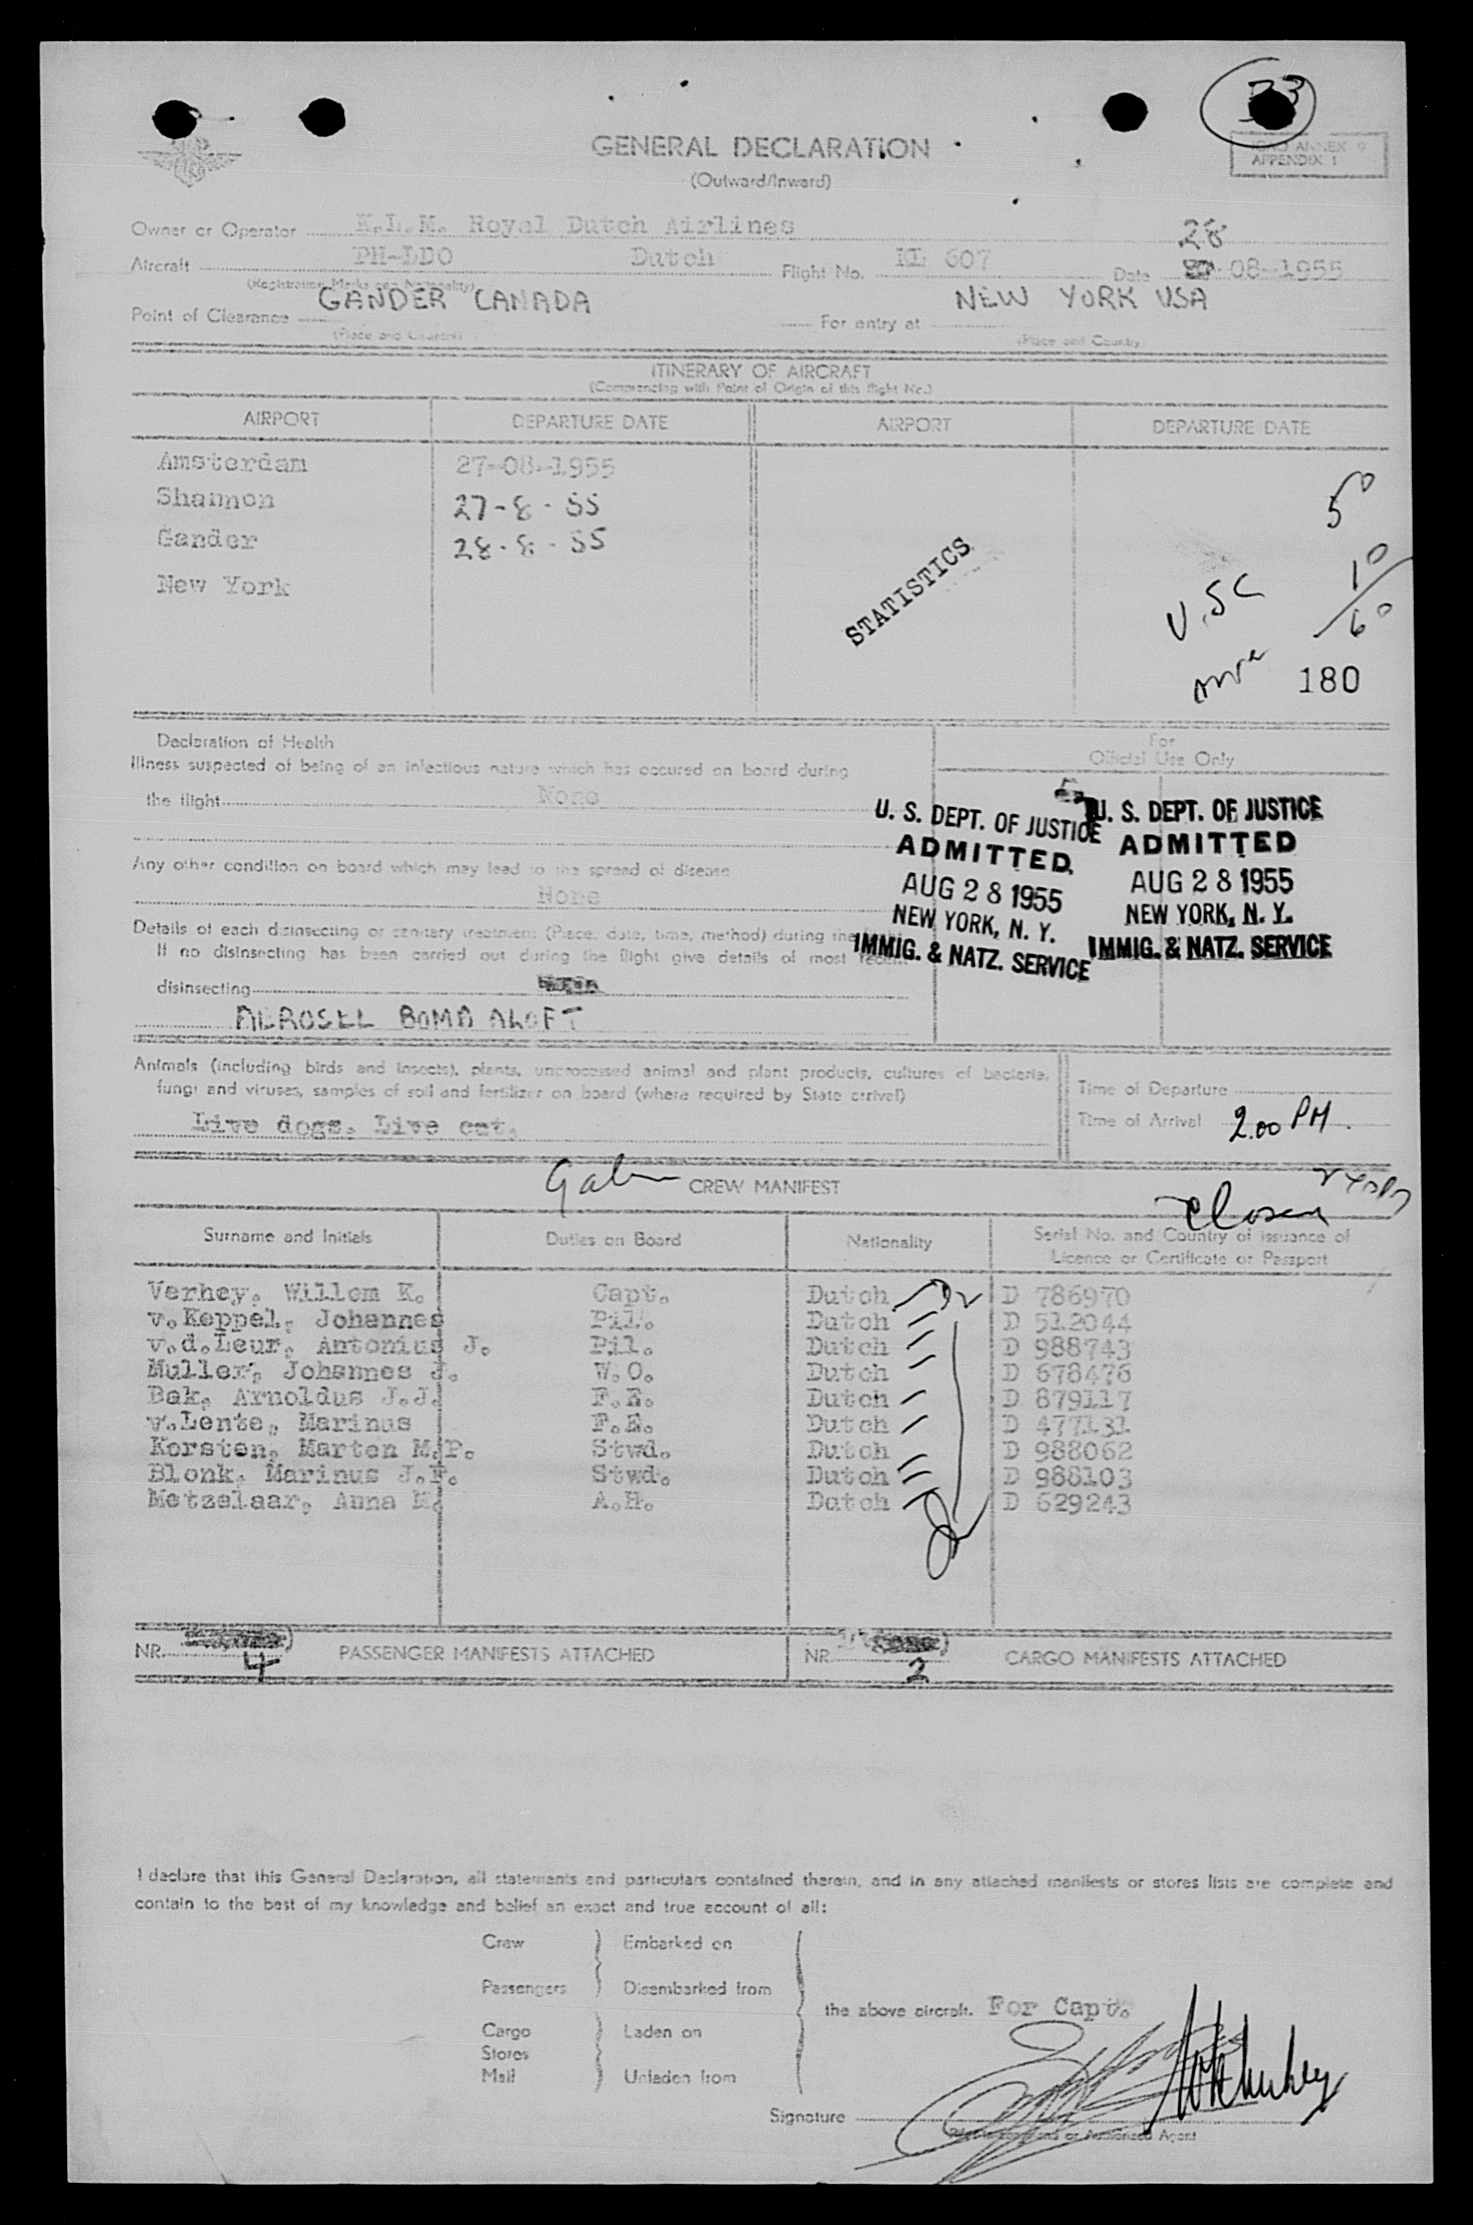 33
GENERAL DECLARATION
(Outward/Inward)
ICAO ANNEX 9
APPENDIX 1
Owner or Operator K.L.M. Royal Dutch Airlines
28
Aircraft PH-LDO Dutch Flight No. KL 607 Date 08-1955
(Registration Marks and Nationality)
Point of Clearance GANDER CANADA For entry at NEW YORK USA
(Place and Country) (Place and Country)
ITINERARY OF AIRCRAFT
(Commencing with Point of Origin of this flight No.)
AIRPORT DEPARTURE DATE AIRPORT DEPARTURE DATE
Amsterdam 27-08-1955
Shannon 27-8-55
Gander 28-8-55
New York
STATISTICS
50
10
60
U.SC
180
Declaration of Health
Illness suspected of being of an infectious nature which has occured on board during
the flight None
Any other condition on board which may lead to the spread of disease
None
Details of each disinsecting or sanitary treatment (Place, date, time, method) during the
If no disinsecting has been carried out during the flight give details of most recent
disinsecting
AEROSEL BOMB ALOFT
For
Official Use Only
U. S. DEPT. OF JUSTICE
ADMITTED
AUG 28 1955
NEW YORK, N. Y.
IMMIG. & NATZ. SERVICE
U. S. DEPT. OF JUSTICE
ADMITTED
AUG 28 1955
NEW YORK, N. Y.
IMMIG. & NATZ. SERVICE
Animals (including birds and insects), plants, unprocessed animal and plant products, cultures of bacteria,
fungi and viruses, samples of soil and fertilizer on board (where required by State arrival)
Live dogs. Live cat.
Time of Departure
Time of Arrival 2.00 PM.
CREW MANIFEST
Surname and Initials Duties on Board Nationality Serial No. and Country of issuance of
Licence or Certificate or Passport
Verhey, Willem K. Capt. Dutch D 786970
v.Keppel, Johannes Pil. Dutch D 512044
v.d.Leur, Antonius J. Pil. Dutch D 988743
Muller, Johannes J. W.O. Dutch D 678476
Bak, Arnoldus J.J. F.E. Dutch D 879117
v.Lente, Marinus F.E. Dutch D 477131
Korsten, Marten M.P. Stwd. Dutch D 988062
Blonk, Marinus J.F. Stwd. Dutch D 988103
Metzelaar, Anna M. A.H. Dutch D 629243
NR. 4 PASSENGER MANIFESTS ATTACHED NR. 2 CARGO MANIFESTS ATTACHED
I declare that this General Declaration, all statements and particulars contained therein, and in any attached manifests or stores lists are complete and
contain to the best of my knowledge and belief an exact and true account of all:
Crew Embarked on
Passengers Disembarked from
the above aircraft. For Capt.
Cargo Laden on
Stores
Mail Unladen from
Signature